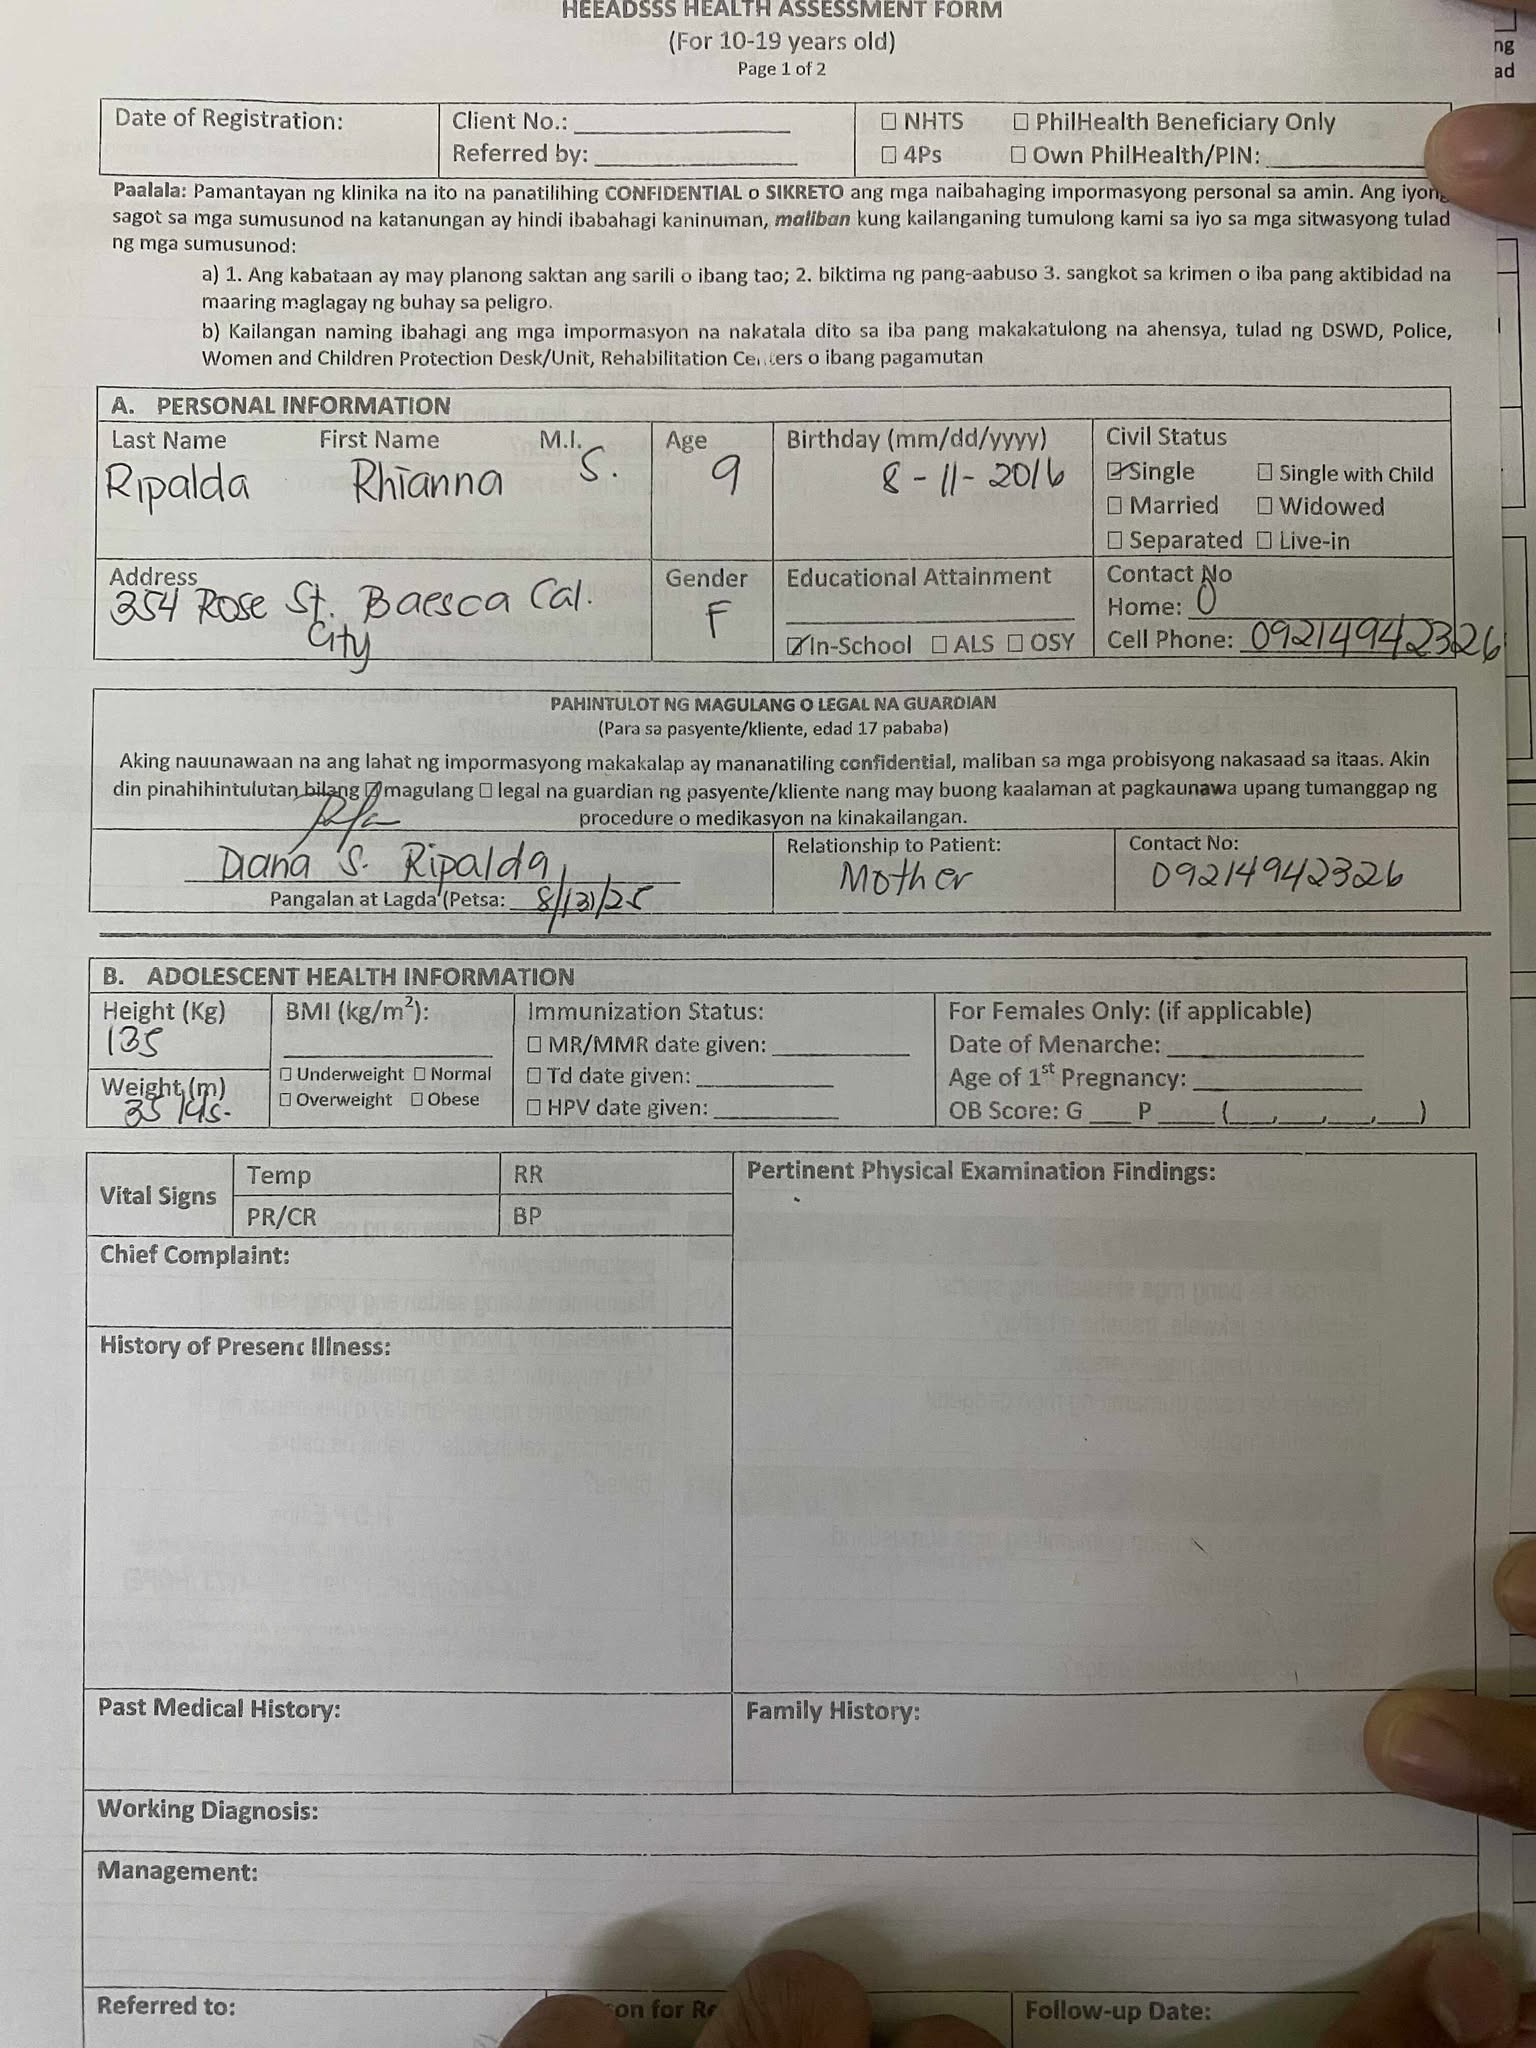 HEEADSSS HEALTH ASSESSMENT FORM
(For 10-19 years old)
Page 1 of 2
ng
ad
Date of Registration:
Client No.: ____________
Referred by: ____________
☐ NHTS ☐ PhilHealth Beneficiary Only
☐ 4Ps ☐ Own PhilHealth/PIN: ____________
Paalala: Pamantayan ng klinika na ito na panatilihing CONFIDENTIAL o SIKRETO ang mga naibahaging impormasyong personal sa amin. Ang iyong
sagot sa mga sumusunod na katanungan ay hindi ibabahagi kaninuman, maliban kung kailanganing tumulong kami sa iyo sa mga sitwasyong tulad
ng mga sumusunod:
a) 1. Ang kabataan ay may planong saktan ang sarili o ibang tao; 2. biktima ng pang-aabuso 3. sangkot sa krimen o iba pang aktibidad na
maaring maglagay ng buhay sa peligro.
b) Kailangan naming ibahagi ang mga impormasyon na nakatala dito sa iba pang makakatulong na ahensya, tulad ng DSWD, Police,
Women and Children Protection Desk/Unit, Rehabilitation Centers o ibang pagamutan
A. PERSONAL INFORMATION
Last Name First Name M.I.
Ripalda Rhianna S.
Age
9
Birthday (mm/dd/yyyy)
8-11-2016
Civil Status
☑ Single ☐ Single with Child
☐ Married ☐ Widowed
☐ Separated ☐ Live-in
Address
354 Rose St. Baesca Cal.
City
Gender
F
Educational Attainment
☑ In-School ☐ ALS ☐ OSY
Contact No
Home: 0
Cell Phone: 09214942326
PAHINTULOT NG MAGULANG O LEGAL NA GUARDIAN
(Para sa pasyente/kliente, edad 17 pababa)
Aking nauunawaan na ang lahat ng impormasyong makakalap ay mananatiling confidential, maliban sa mga probisyong nakasaad sa itaas. Akin
din pinahihintulutan bilang ☑ magulang ☐ legal na guardian ng pasyente/kliente nang may buong kaalaman at pagkaunawa upang tumanggap ng
procedure o medikasyon na kinakailangan.
Diana S. Ripalda
Pangalan at Lagda (Petsa: 8/13/25
Relationship to Patient:
Mother
Contact No:
09214942326
B. ADOLESCENT HEALTH INFORMATION
Height (Kg)
135
Weight (m)
35 kgs.
BMI (kg/m²):
☐ Underweight ☐ Normal
☐ Overweight ☐ Obese
Immunization Status:
☐ MR/MMR date given: ____________
☐ Td date given: ____________
☐ HPV date given: ____________
For Females Only: (if applicable)
Date of Menarche: ____________
Age of 1st Pregnancy: ____________
OB Score: G ___ P ____ (___,___,___,___)
Vital Signs
Temp
RR
PR/CR
BP
Pertinent Physical Examination Findings:
Chief Complaint:
History of Present Illness:
Past Medical History:
Family History:
Working Diagnosis:
Management:
Referred to:
son for Re
Follow-up Date: